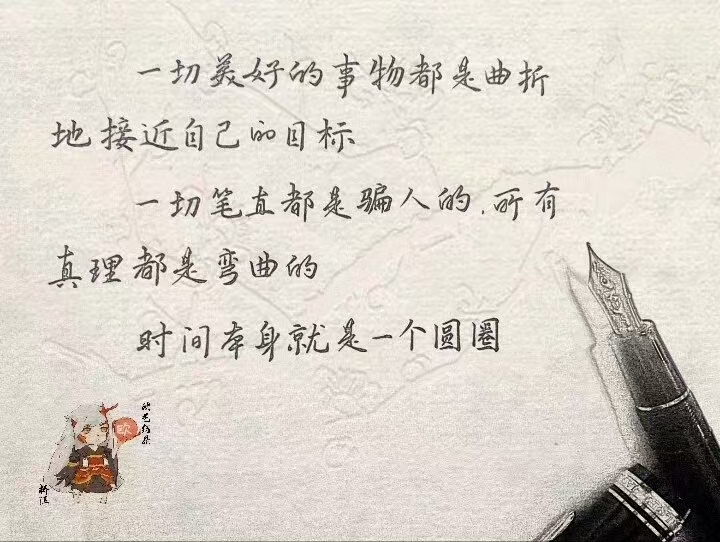 一切美好的事物都是曲折
地接近自己的目标
一切笔直都是骗人的,所有
真理都是弯曲的
时间本身就是一个圆圈
欧